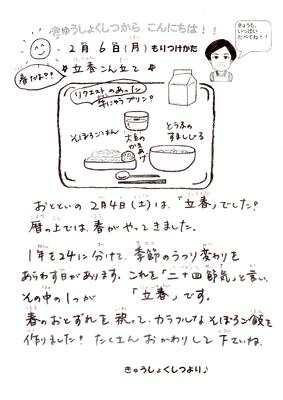 きゅうしょくしつから こんにちは！！
きょうも、
いっぱい
たべてね！！
2月 6日(月) もりつけかた
春だよ!?
立春こん立て
リクエストのあった
牛にゅうプリン。
そぼろごはん
大豆の
かきあげ
とうふの
すましじる
おとといの 2月4日(土)は、「立春」でした。
暦の上では、春がやってきました。
1年を24に分けて、季節のうつり変わりを
あらわす日があります。これを「二十四節気」と言い、
その中の1つが 「立春」です。
春のおとずれを祝って、カラフルなそぼろご飯を
作りました！たくさんおかわりして下さいね。
きゅうしょくしつより♪